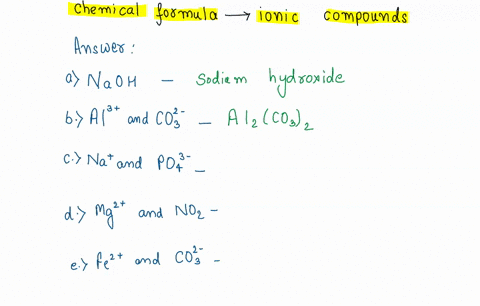 chemical formula → ionic compounds
Answer :
a:> NaOH – Sodium hydroxide
b:> Al³⁺ and CO₃²⁻ – Al₂(CO₃)₂
c:> Na⁺ and PO₄³⁻ –
d:> Mg²⁺ and NO₂ –
e:> Fe²⁺ and CO₃²⁻ –